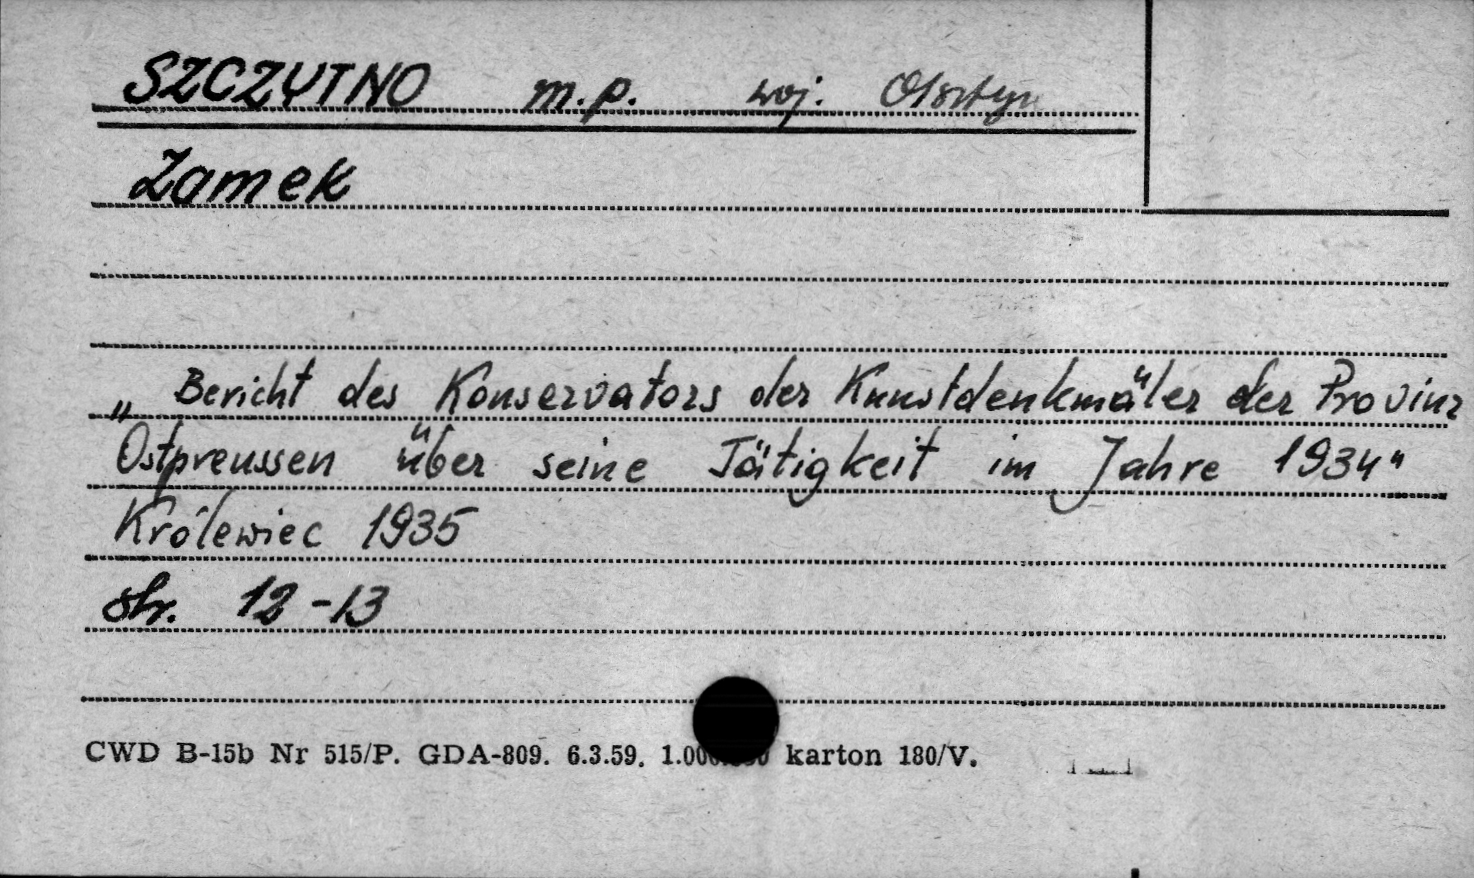 SZCZYTNO m.p. woj. Olsztyn
Zamek
„Bericht des Konservators der Kunstdenkmäler der Provinz
Ostpreussen über seine Tätigkeit im Jahre 1934"
Królewiec 1935
str. 12-13
CWD B-15b Nr 515/P. GDA-809. 6.3.59. karton 180/V.